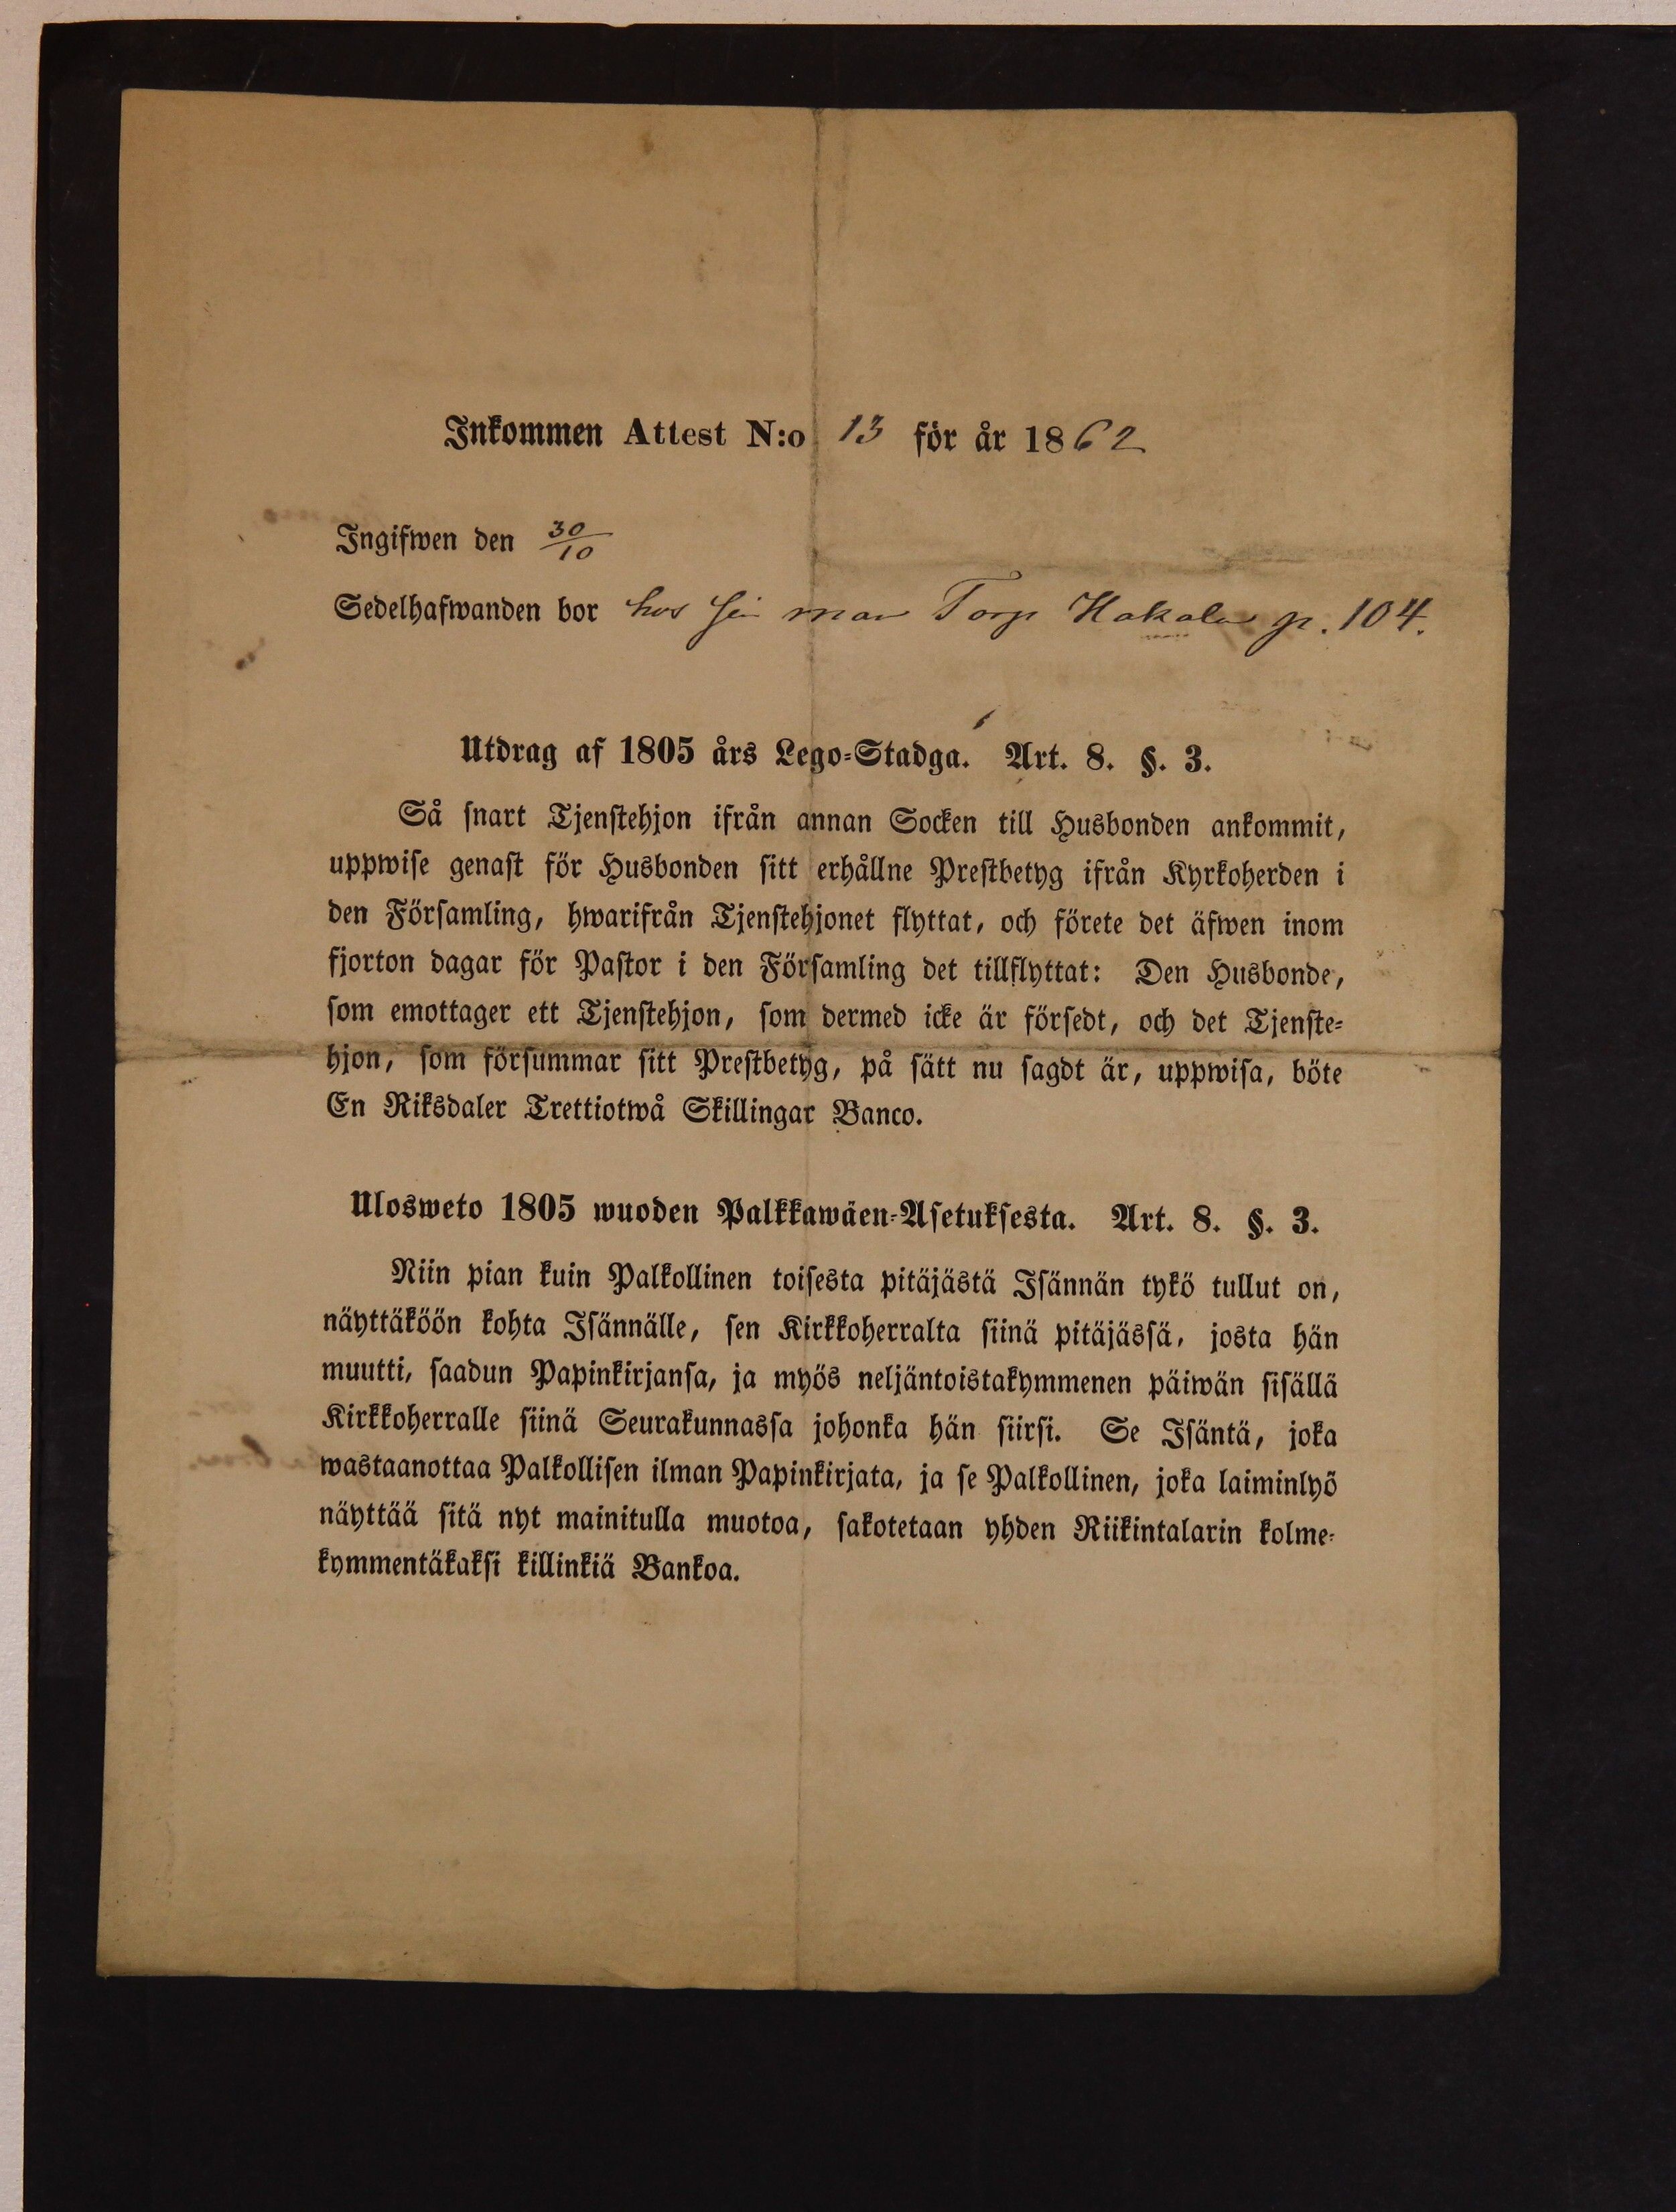 Inkommen Attest N:o 13 för år 1862
Ingifwen den 30/10
Sedelhafwanden bor hos sin man Torp Hakala p. 104.
Utdrag af 1805 års Lego-Stadga. Art. 8. §. 3.
Så snart Tjenstehjon ifrån annan Socken till Husbonden ankommit,
uppwise genast för Husbonden sitt erhållne Prestbetyg ifrån Kyrkoherden i
den Församling, hwarifrån Tjenstehjonet flyttat, och förete det äfwen inom
fjorton dagar för Pastor i den Församling det tillflyttat: Den Husbonde,
som emottager ett Tjenstehjon, som dermed icke är försedt, och det Tjenste-
hjon, som försummar sitt Prestbetyg, på sätt nu sagdt är, uppwisa, böte
En Riksdaler Trettiotwå Skillingar Banco.
Ulosweto 1805 wuoden Palkkawäen-Asetuksesta. Art. 8. §. 3.
Niin pian kuin Palkollinen toisesta pitäjästä Isännän tykö tullut on,
näyttäköön kohta Isännälle, sen Kirkkoherralta siinä pitäjässä, josta hän
muutti, saadun Papinkirjansa, ja myös neljäntoistakymmenen päiwän sisällä
Kirkkoherralle siinä Seurakunnassa johonka hän siirsi. Se Isäntä, joka
wastaanottaa Palkollisen ilman Papinkirjata, ja se Palkollinen, joka laiminlyö
näyttää sitä nyt mainitulla muotoa, sakotetaan yhden Riikintalarin kolme-
kymmentäkaksi killinkiä Bankoa.